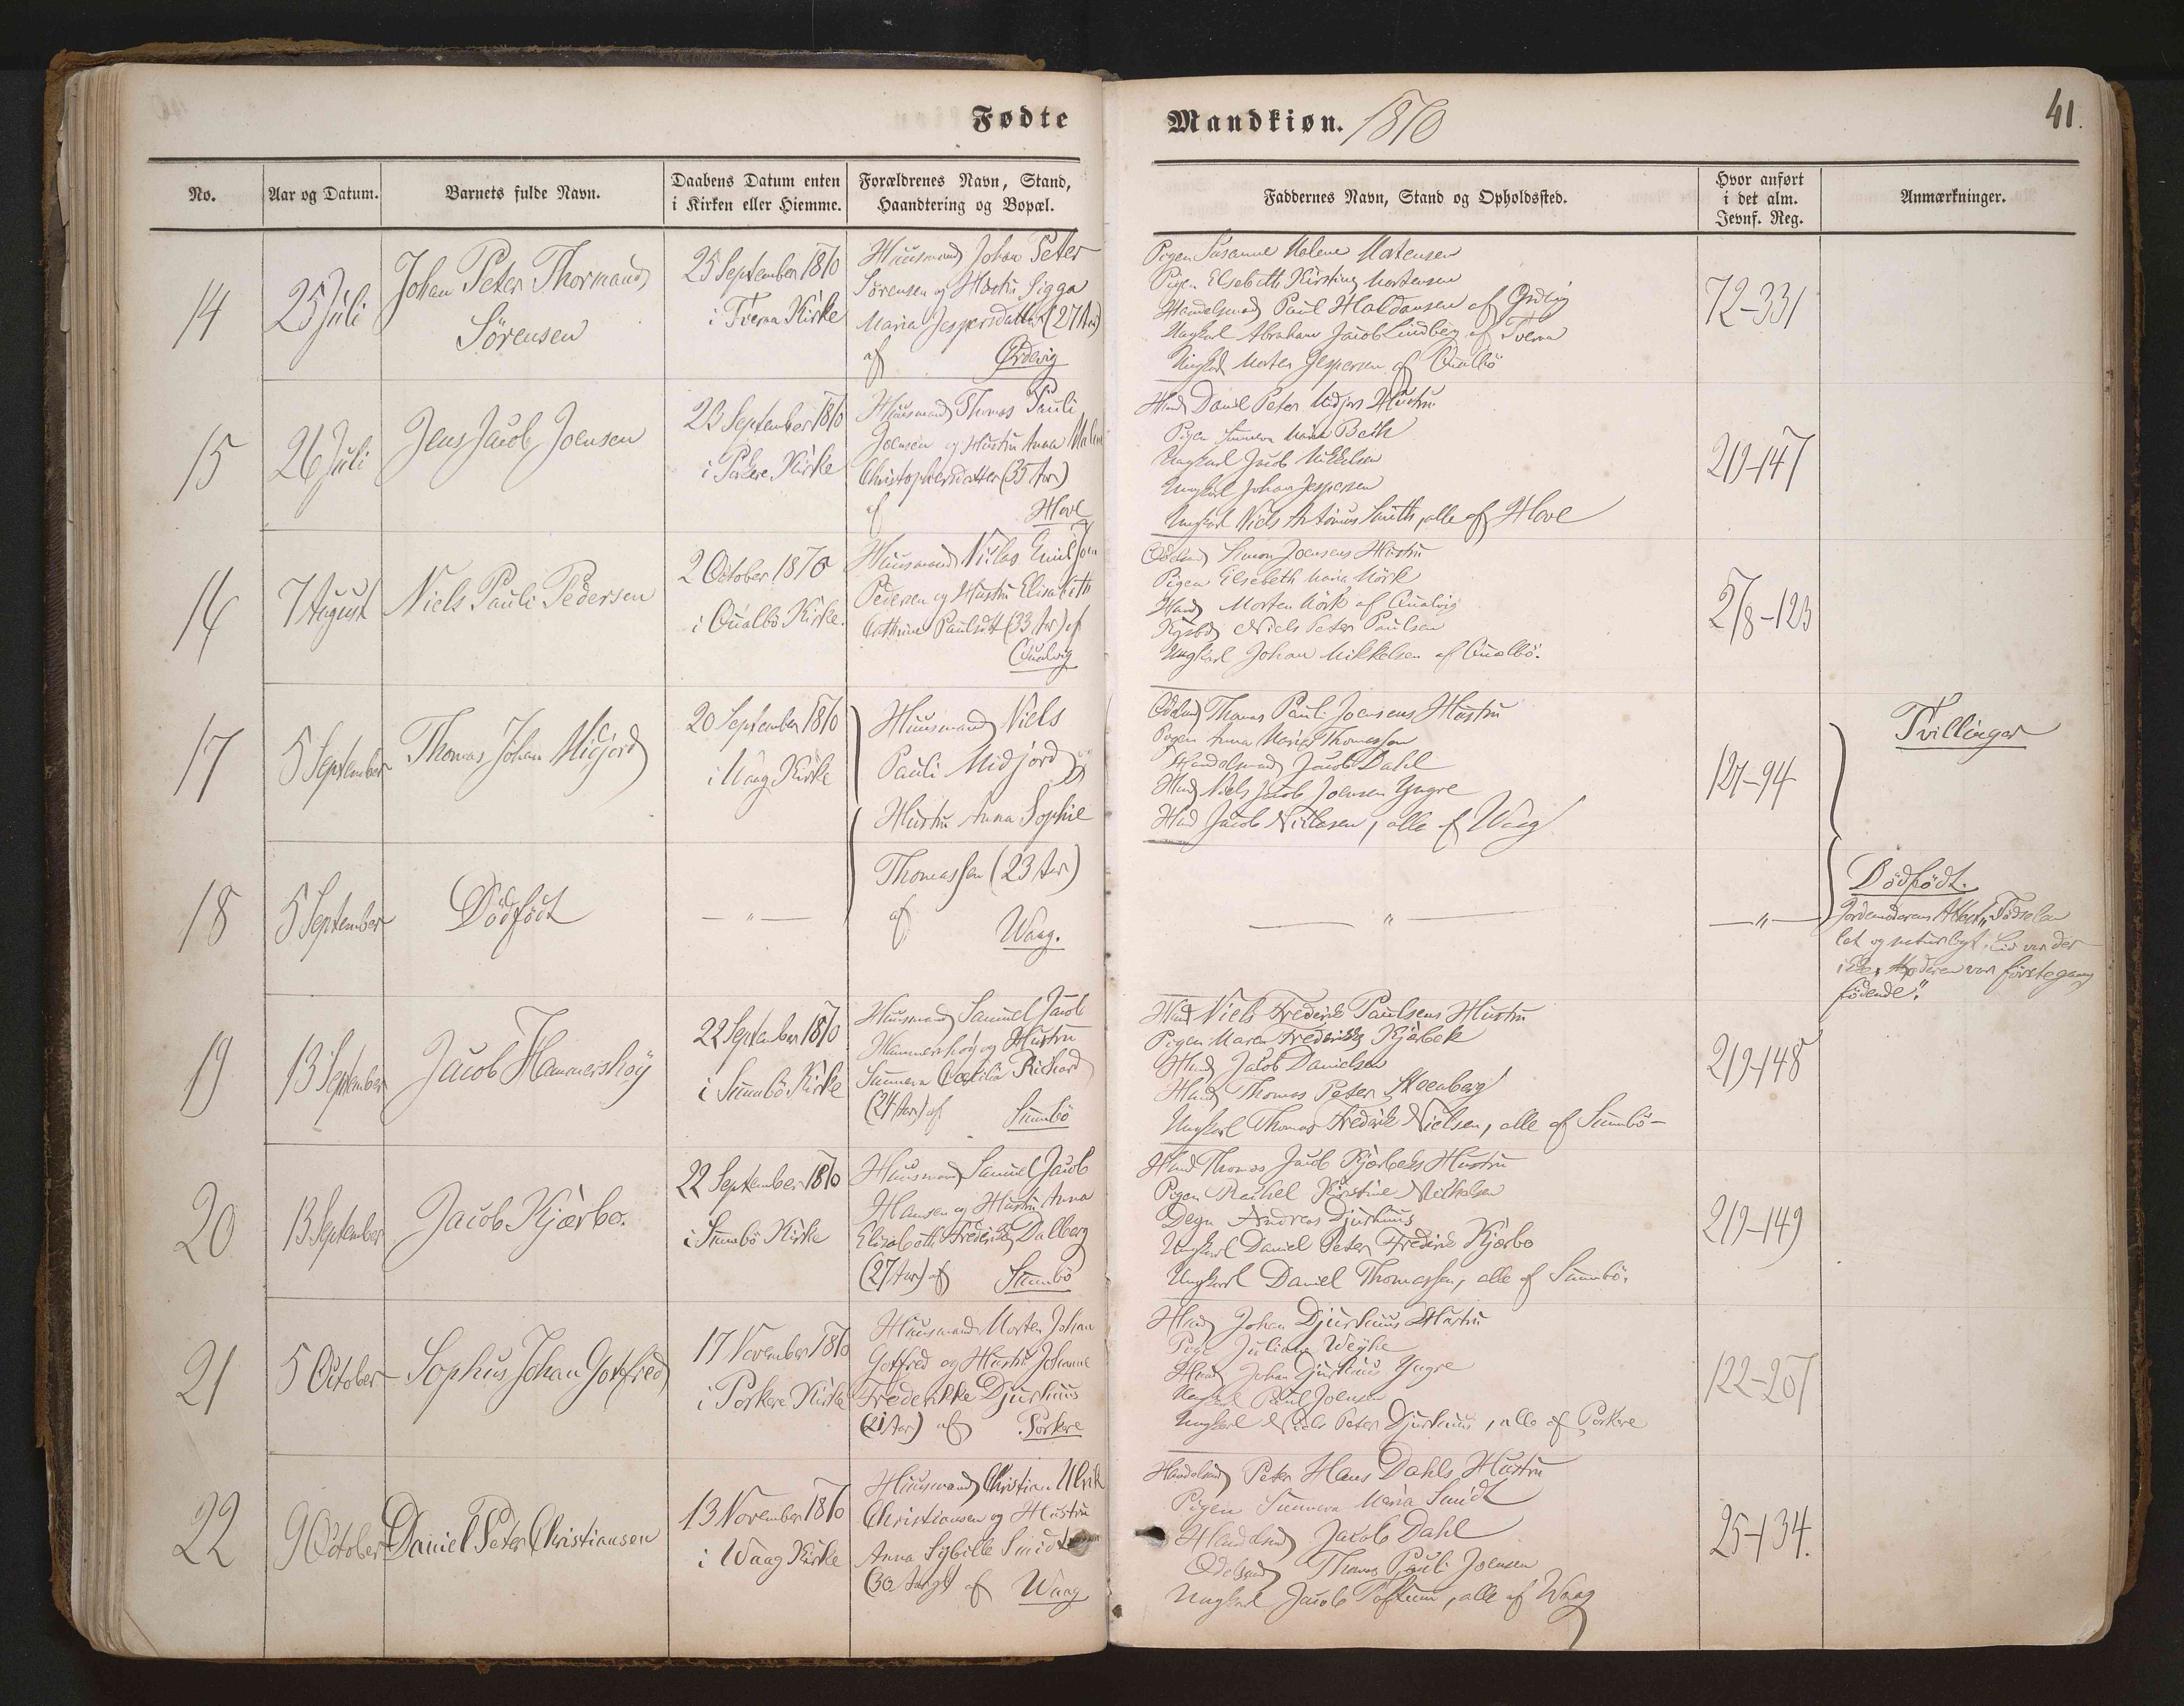 Fødte
Mandkiøn. 1870
41.
No.
Aar og Datum.
Barnets fulde Navn.
Daabens Datum enten
i Kirken eller Hiemme.
Forældrenes Navn, Stand,
Haandtering og Bopæl.
Faddernes Navn, Stand og Opholdssted.
Hvor anført
i det alm.
Jevnf. Reg.
Anmærkninger.
14
25 Juli
Johan Peter Thormand
Sörensen
25 September 1870
i Tveraa Kirke
Huusmand Johan Peter
Sörensen og Hustru Sigga
Maria Jespersdatter (27 Aar)
af Ørdevig
Pigen Susanne Malene Mortensen
Pigen Elsebeth Kirstine Mortensen
Handelsmand Paul Haldansen af Ördvig
Ungkarl Abraham Jacob Lindberg af Tveraa
Ungkarl Morten Jespersen af Qualbö
72-331
15
26 Juli
Jens Jacob Joensen
23 September 1870
i Porkere Kirke
Huusmand Thomas Pauli
Joensen og Hustru Anna Malene
Christophersdatter (35 Aar)
af Hove
Hmd Daniel Peter Midjords Hustru
Pigen Sunneva Maria Bech
Ungkarl Jacob Mikkelsen
Ungkarl Johan Jespersen
Ungkarl Niels Antonius Smith, alle af Hove
219-147
16
7 August
Niels Pauli Pedersen
2 October 1870
i Qualbö Kirke.
Huusmand Niclas Emil Joen
Pedersen og Hustru Elisabeth
Cathrine Paulsdtt (33 Ar) af
Qualvig
Odelsmd Simon Joensens Hustru
Pigen Elsebeth Maria Mörk
Hmd Morten Mörk af Qualvig
Niels Peter Paulsen
Ungkarl Johan Mikkelsen af Qualbö.
218-123
17
5 September
Thomas Johan Midjord
20 September 1870
i Waag Kirke
Huusmand Niels
Pauli Midjord og
Hustru Anna Sophie
Odelsmd Thomas Pauli Joensens Hustru
Pigen Anna Maria Thomassen
Handelsmand Jacob Dahl
Hmd Niels Jacob Joensen Yngre
Hmd Jacob Niclasen, alle af Waag
127-94
Tvillinger
18
5 September
Dödfödt
— " —
Thomassen (23 Aar)
af Waag.
— " —
— " —
Dödfödt.
Jordemoderens Attest: "Fødselen
let og naturligt. Liv var der
ikke, Moderen var förstegang
födende".
19
13 September
Jacob Hammershöj
22 September 1870
i Sumbö Kirke
Huusmand Samuel Jacob
Hammershöj og Hustru
Sunneva Cecilia Richard
(24 Aar) af Sumbö
Hmd Niels Frederik Paulsens Hustru
Pigen Maren Frederikke Kjærbek
Hmd Jacob Danielsen
Hmd Thomas Peter Skeenberg
Ungkarl Thomas Frederik Nielsen, alle af Sumbö-
219-148
20
13 September
Jacob Kjærbo.
22 September 1870
i Sumbö Kirke
Huusmand Samuel Jacob
Hansen og Hustru Anna
Elisabeth Frederikke Dalberg
(27 Aar) af Sumbö
Hmd Thomas Jacob Kjærbeks Hustru
Pigen Rachel Kirstine Nicholsen
Degn Andreas Djurhuus
Ungkarl Daniel Peter Frederik Kjærbo
Ungkarl Daniel Thomassen, alle af Sumbö.
219-149
21
5 October
Sophus Johan Gotfred
17 November 1870
i Porkere Kirke
Huusmand Morten Johan
Gotfred og Hustru Johanne
Frederikke Djurhuus
(21 Aar) af Porkere
Hmd Johan Djurhuus Hustru
Pige Juliane Weyhe
Hmd Johan Djurhuus Yngre
Ungkarl Poul Joensen
Ungkarl Niels Peter Djurhuus, alle af Porkere
122-207
22
9 October
Daniel Peter Christiansen
13 November 1870
i Waag Kirke
Huusmand Christian Ulrik
Christiansen og Hustru
Anna Sybille Smidt
(30 Aar) af Waag
Handelsmd Peter Hans Dahls Hustru
Pigen Sunneva Maria Smidt
Handelsmd Jacob Dahl
Odelsmd Thomas Pauli Joensen
Ungkarl Jacob Poftum, alle af Waag
25-134.